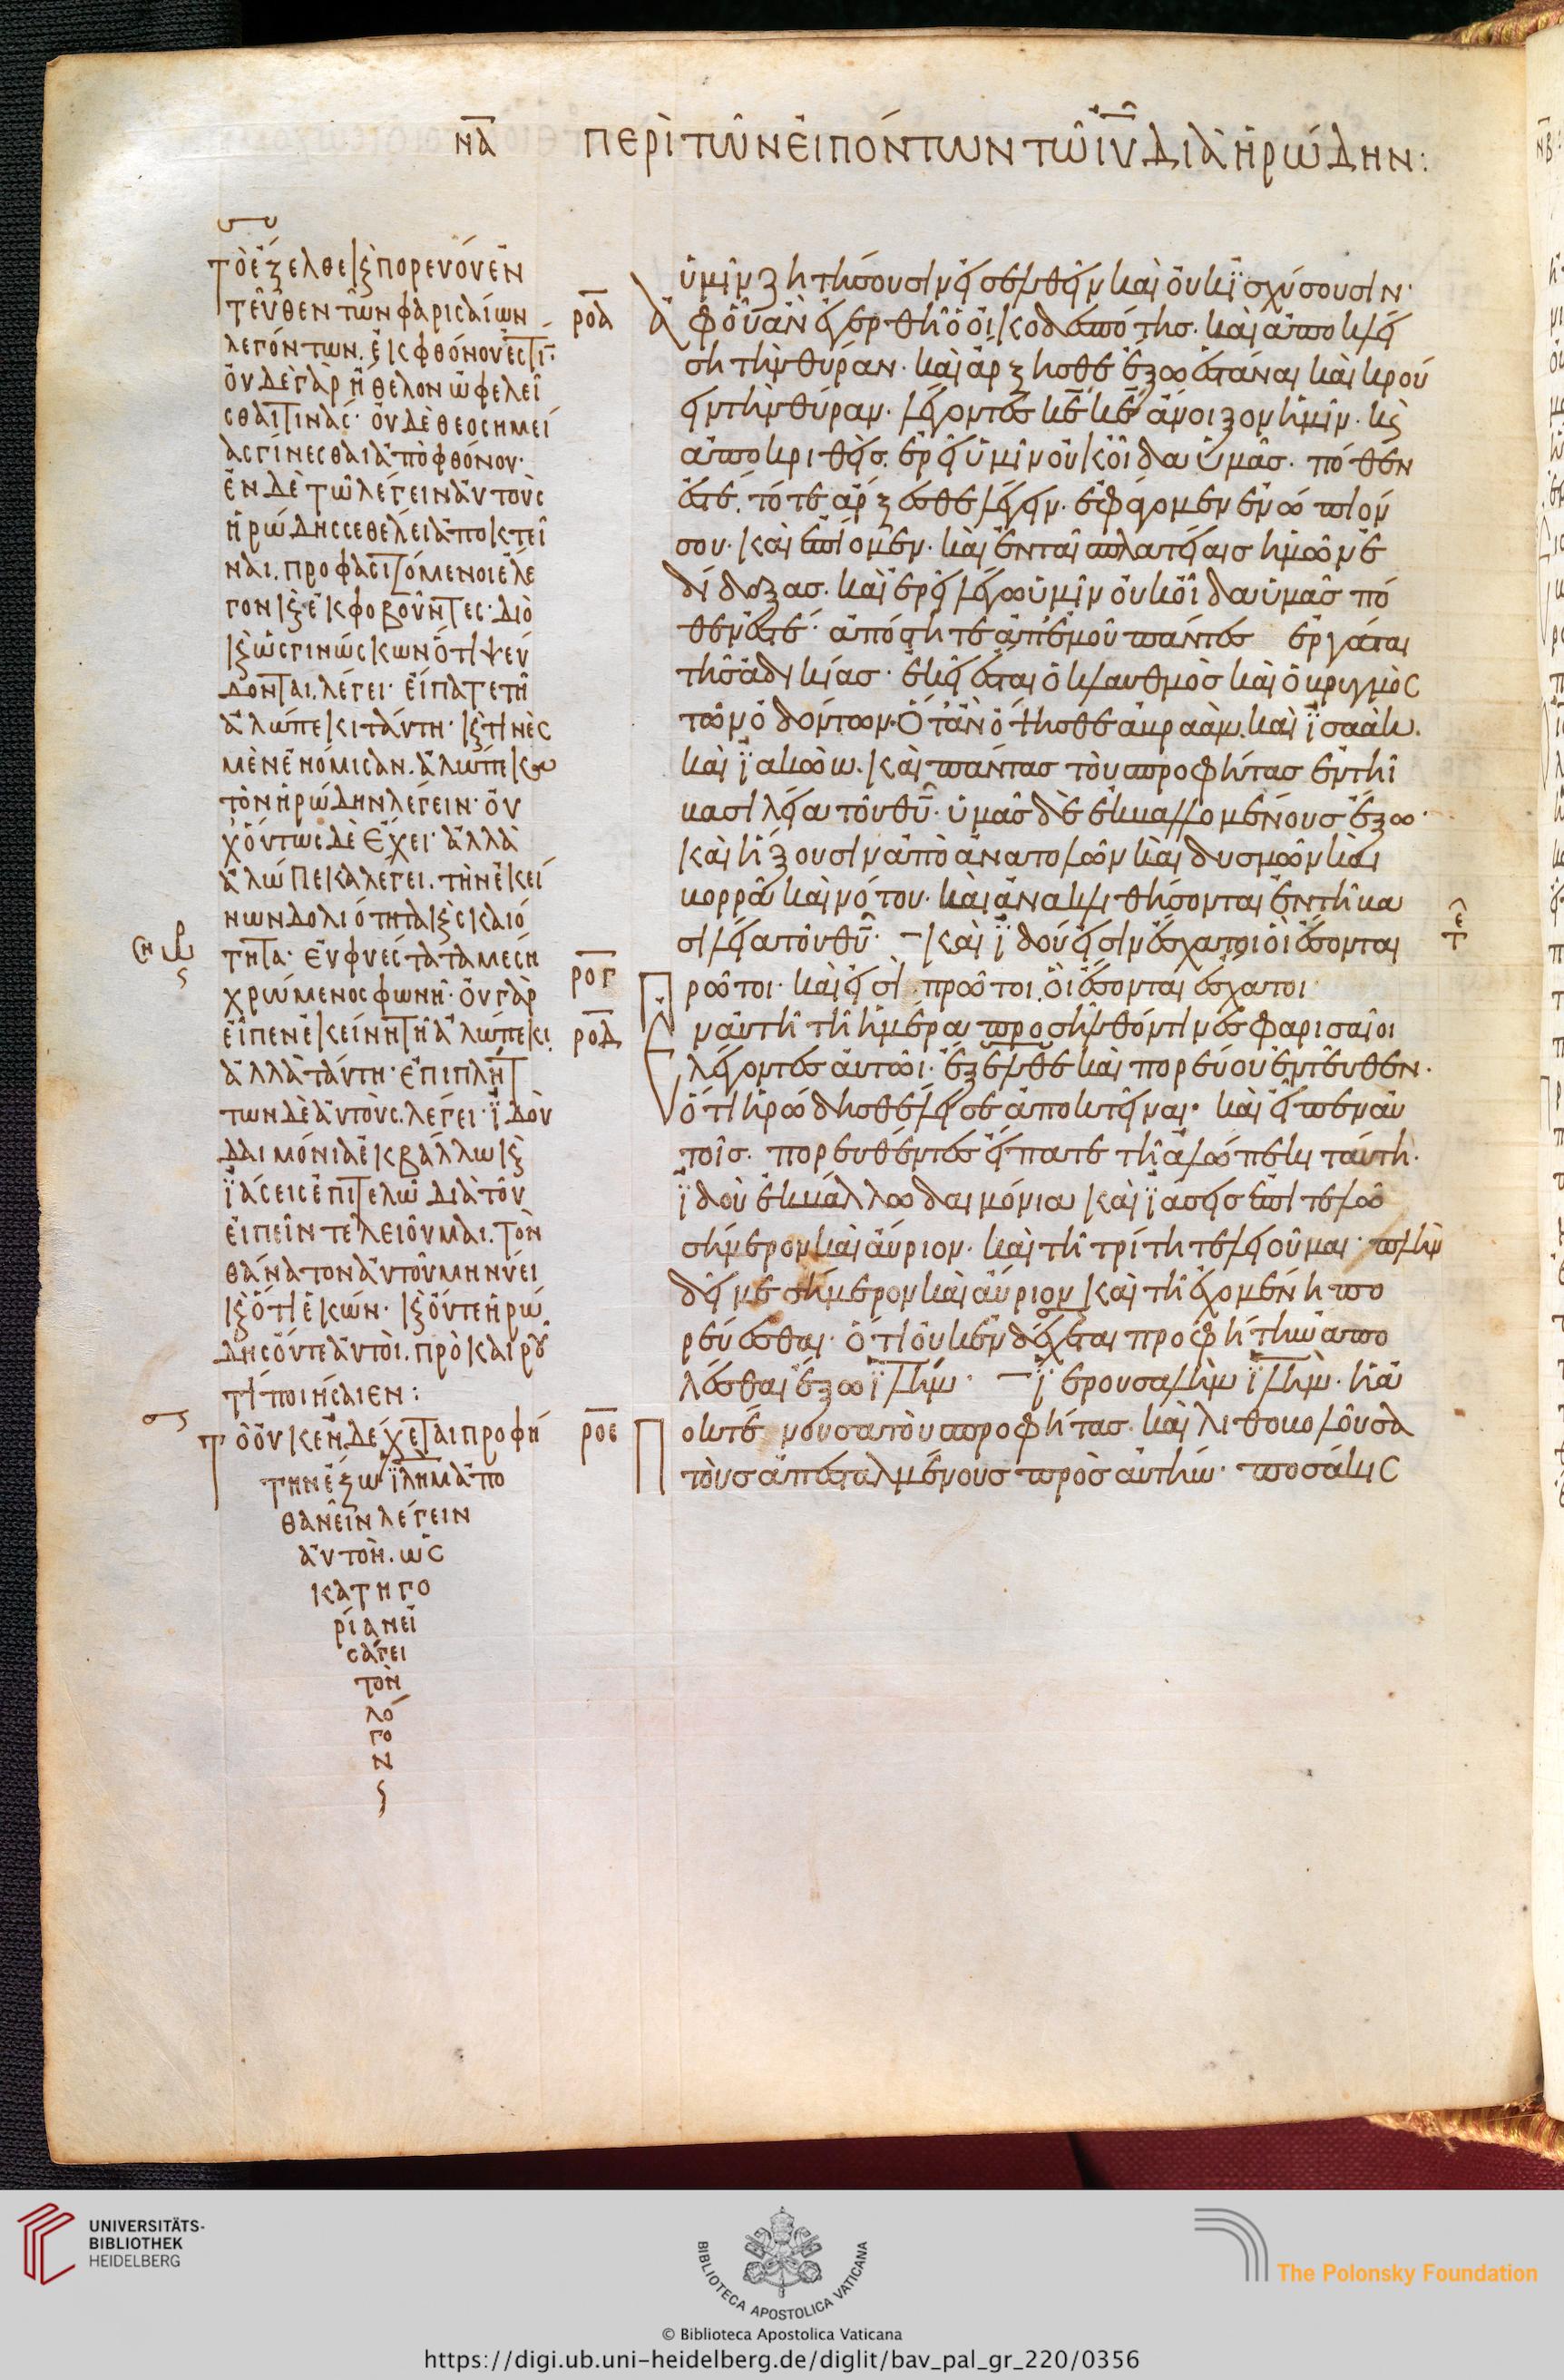 ν̅α̅ περὶ τῶν εἰπόντων τῶ ι̅υ̅ διὰ ἡρώδην:
τὸ ἔξελθε κ(αὶ) πορεύου ἐν
τεῦθεν τῶν φαρισαίων
λεγόντων. ἐκ φθόνου ἐστί·
οὐδὲ γὰρ ἤθελον ὠφελεῖ
σθαι τινάς· οὐδὲ θεοσημεί
ας γίνεσθαι ἀπὸ φθόνου·
ἐν δὲ τῶ λέγειν αὐτοὺς
ἡρώδης σε θέλει ἀποκτεῖ
ναι. προφασιζόμενοι ἔλε
γον κ(αὶ) ἐκφοβοῦντες· διὸ
κ(αὶ) ὡς γινώσκων ὅτι ψεύ
δονται. λέγει· εἴπατε τῆ
ἀλώπεκι ταύτη· κ(αὶ) τινὲς
μὲν ἐνόμισαν. ἀλώπεκα
τὸν ἡρώδην λέγειν· οὐ
χ οὕτως δὲ ἔχει· ἀλλὰ
ἀλώπεκα λέγει. τὴν ἐκεί
νων δολιότητα κ(αὶ) σκαιό
τητα· εὐφυέστατα μέση
χρώμενος φωνῆ· οὐ γὰρ
εἶπεν ἐκείνη τῆ ἀλώπεκι.
ἀλλὰ ταύτη· ἐπιπλήτ
των δὲ αὐτοὺς. λέγει· ἰδοὺ
δαιμόνια ἐκβάλλω κ(αὶ)
ἰάσεις ἐπιτελῶ διὰ τοῦ
εἰπεῖν τελειοῦμαι. τὸν
θάνατον αὐτοῦ μηνύει
κ(αὶ) ὅτι ἑκών· κ(αὶ) οὔτε ἡρώ
δης οὔτε αὐτοὶ. πρὸ καιροῦ
τι ποιήσαιεν:
τὸ οὐκ ἐνδέχεται προφή
την ἔξω ἰλημ ἀπο
θανεῖν λέγειν
αὐτὸν. ὡς
κατηγο
ρίαν εἰ
σάγει
τὸν
λό
γο
ν
ὑμῖν ζητήσουσιν εἰσελθεῖν καὶ οὐκ ἰσχύσουσιν·
ρ̅ο̅α̅ ἀφ' οὗ ἂν ἐγερθῆ ὁ οἰκοδεσπότης· καὶ ἀποκλεί
ση τὴν θύραν· καὶ ἄρξησθε ἔξω ἑστάναι καὶ κρού
ειν τὴν θύραν· λέγοντες κ̅ε̅ κ̅ε̅ ἄνοιξον ἡμῖν· κ(αὶ)
ἀποκριθεὶς. ἐρεῖ ὑμῖν οὐκ οἶδα ὑμᾶς· πόθεν
ἐστέ. τότε ἄρξεσθε λέγειν· ἐφάγομεν ἐνώπιόν
σου· καὶ ἐπίομεν· καὶ ἐν ταῖ πλατείαις ἡμῶν ἐ
δίδαξας· καὶ ἐρεῖ λέγω ὑμῖν οὐκ οἶδα ὑμᾶς πό
θεν ἐστέ· ἀπόστητε ἀπ' ἐμοῦ πάντες ἐργάται
τῆς ἀδικίας· ἐκεῖ ἔσται ὁ κλαυθμὸς καὶ ὁ βρυγμὸς
τῶν ὀδόντων· ὅταν ὄψησθε ἀβραὰμ. καὶ ἰσαὰκ.
καὶ ἰακώβ. καὶ πάντας τοὺ προφήτας ἐν τῆ
βασιλεία τοῦ θ̅υ̅· ὑμᾶς δὲ ἐκβαλλομένους ἔξω·
καὶ ἥξουσιν ἀπὸ ἀνατολῶν καὶ δυσμῶν καὶ
βορρᾶ καὶ νότου· καὶ ἀνακλιθήσονται ἐν τῆ βα
σιλεία τοῦ θ̅υ̅· καὶ ἰδού εἰσιν ἔσχατοι οἳ ἔσονται
ρ̅ο̅γ̅ πρῶτοι· καὶ εἰσὶ πρῶτοι οἳ ἔσονται ἔσχατοι
ρ̅ο̅δ̅ ἐν αὐτῆ τῆ ἡμέρα προσῆλθόν τινες φαρισαῖοι
λέγοντες αὐτῶι· ἔξελθε καὶ πορεύου ἐντεῦθεν·
ὅτι ἡρώδης θέλει σε ἀποκτεῖναι· καὶ εἶπεν αὐ
τοῖς· πορευθέντες εἴπατε τῆ ἀλώπεκι ταύτη·
ἰδοὺ ἐκβάλλω δαιμόνια καὶ ἰάσεις ἐπιτελῶ
σήμερον καὶ αὔριον· καὶ τῆ τρίτη τελειοῦμαι· πλὴν
δεῖ με σήμερον καὶ αὔριον καὶ τῆ ἐχομένη πο
ρεύεσθαι· ὅτι οὐκ ἐνδέχεται προφήτην ἀπο
λέσθαι ἔξω ἰ̅λ̅ή̅μ̅· ἰερουσαλὴμ ἰ̅λ̅ὴ̅μ̅· ἡ ἀ
ρ̅ο̅ε̅ ποκτέννουσα τοὺ προφήτας· καὶ λιθοβολοῦσα
τοὺς ἀπεσταλμένους πρὸς αὐτήν· ποσάκις
UNIVERSITÄTS-
BIBLIOTHEK
HEIDELBERG
BIBLIOTECA APOSTOLICA VATICANA
The Polonsky Foundation
© Biblioteca Apostolica Vaticana
https://digi.ub.uni-heidelberg.de/diglit/bav_pal_gr_220/0356